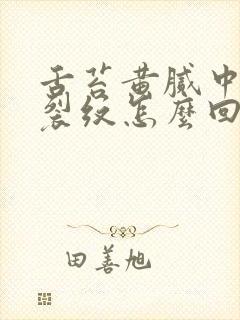 舌苔黄腻中
裂纹怎麼回
田善旭